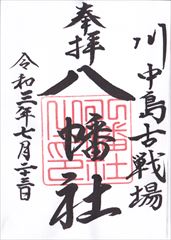 川中島古戦場
奉拝
八幡社
令和三年七月二十三日